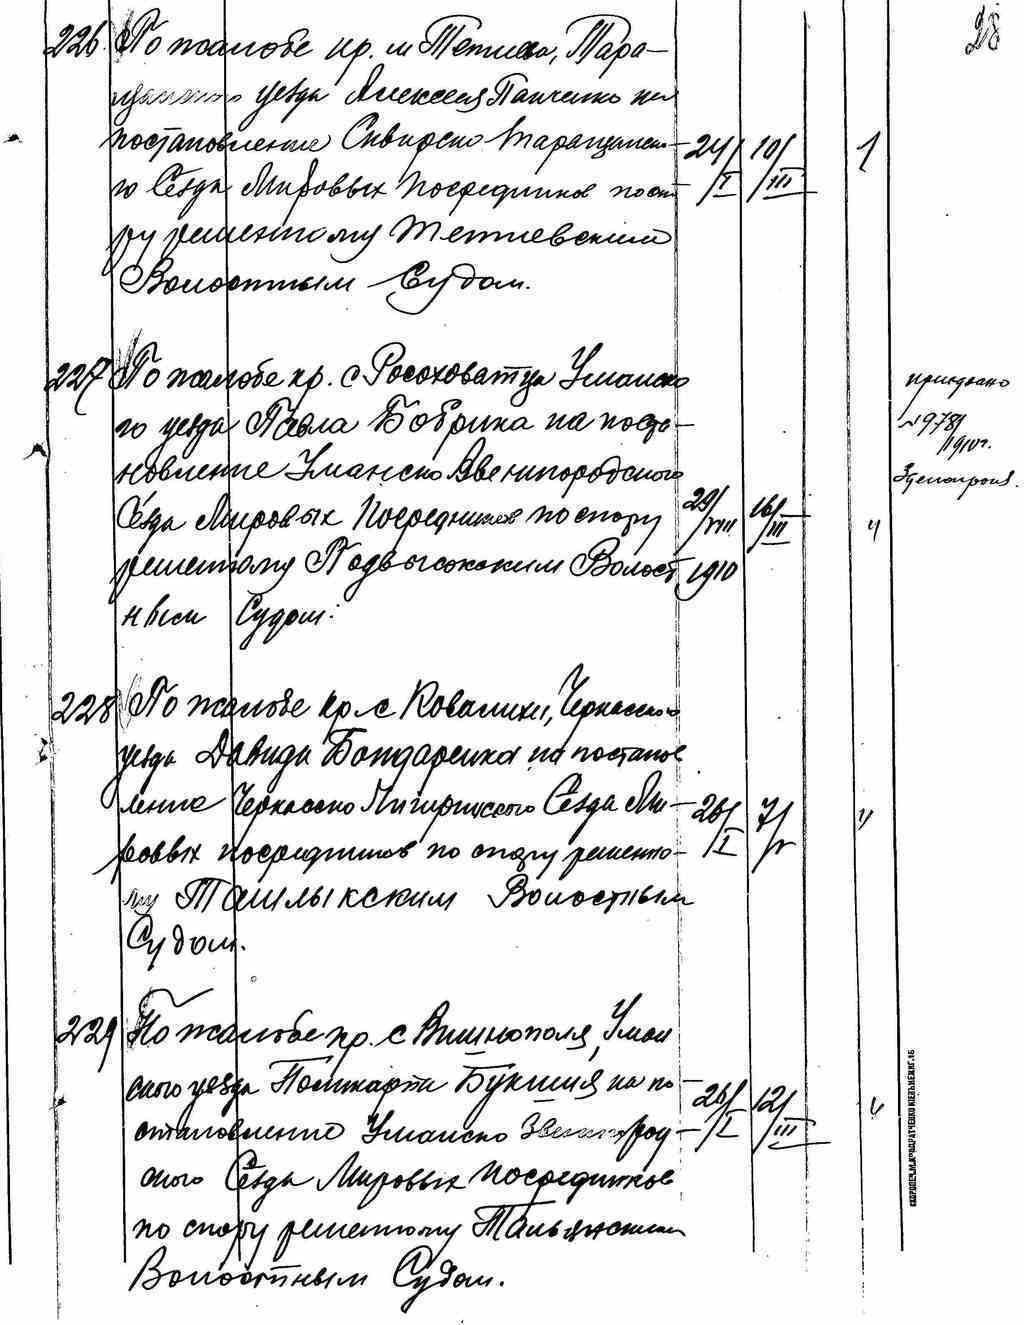 28
226 По жалобе кр. м Тетиева, Тара-
щанского уезда Алексея Панченко на
постановление Сквирско Таращанско-
го Сѣзда Мировых Посредников по спо-
ру решенному Тетиевским
Волостным Судом.
24/I 10/III 1
227 По жалобе кр. с Росоховатца Уманско
го уезда Павла Бобрика на поста-
новление Уманско Звенигородского
Сѣзда Мировых Посредников по спору
решенному Подвысокским Волост
ным Судом.
29/VIII 1910 16/III 4
приедзано
№978/
1910г.
228 По жалобе кр. с Ковалихи, Черкасского
уезда Давида Бондаренка на постанов
ление Черкасско Чигиринского Сѣзда Ми-
ровых посредников по спору решенно-
му Ташлыкским Волостным
Судом.
26/I 7/V 4
229 По жалобе кр. с Вишнополя, Уман
ского уезда Поликарпа Букшия на по-
становление Уманско Звенигород-
ского Сѣзда Мировых Посредников
по спору решенному Тальянским
Волостным Судом.
26/I 12/III 4